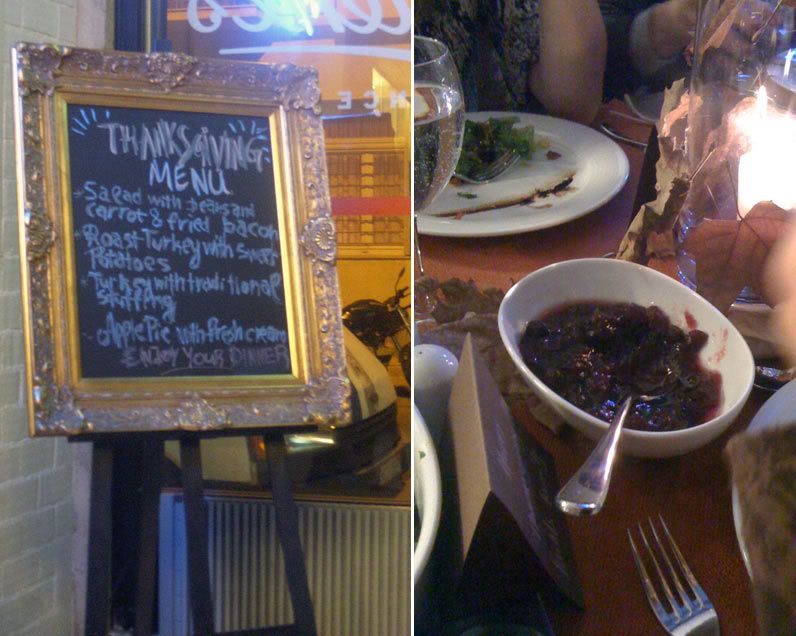 THANKSGIVING
MENU
Salad with beans and
carrot & fried bacon
Roast Turkey with Sweet
Potatoes
Turkey with traditional
stuffing
Apple Pie with Fresh cream
ENJOY YOUR DINNER